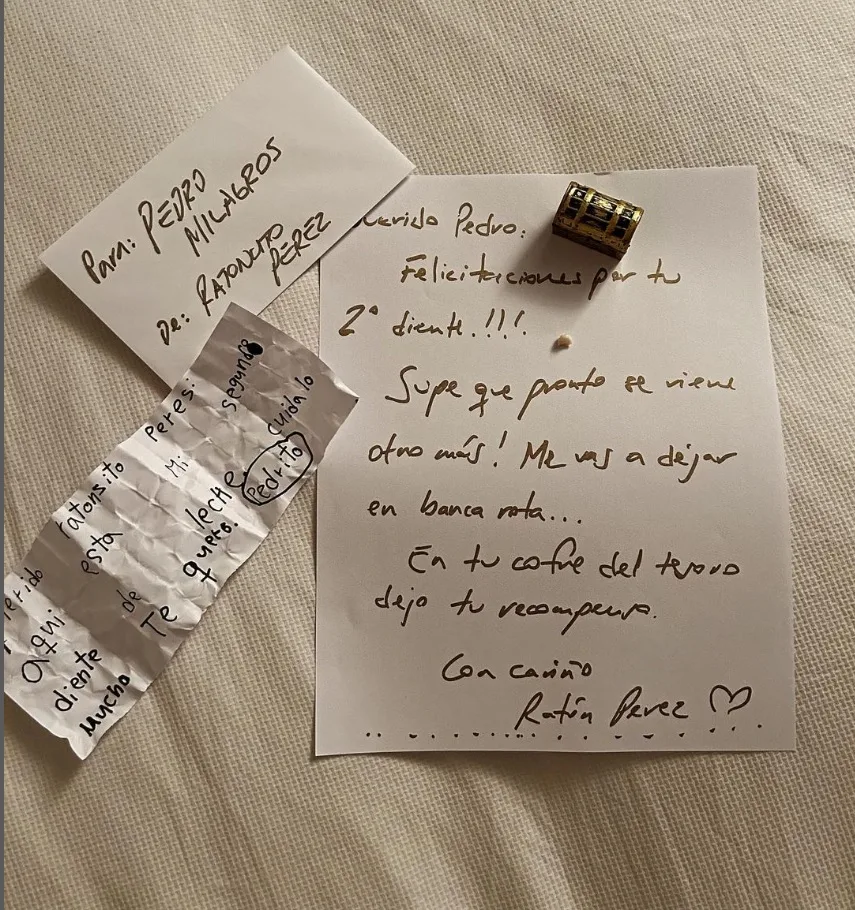 Para: PEDRO
MILAGROS
De: RATONCITO
PEREZ
Querido Pedro:
Felicitaciones por tu
2º diente.!!!.
Supe que pronto se viene
otro más! Me vas a dejar
en banca rota...
En tu cofre del tesoro
dejo tu recompensa.
Con cariño
Ratón Perez
Querido ratonsito Peres:
Aqui esta Mi segundo
diente de leche. Cuidalo
Mucho Te quero. Pedrito